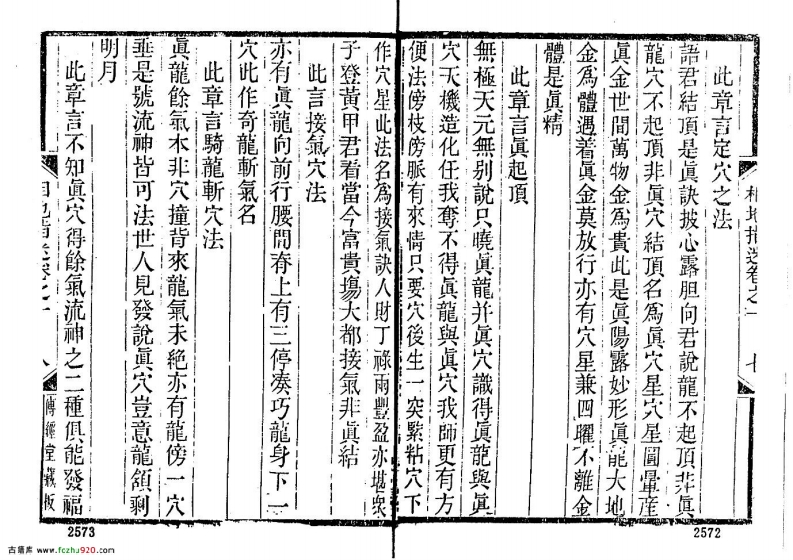 此章言定穴之法
語君結頂是眞訣披心露胆向君說龍不起頂非眞
龍穴不起頂非眞穴結頂名爲眞穴星穴星圓暈産
眞金世間萬物金爲貴此是眞陽露妙形眞龍大地
金爲體遇着眞金莫放行亦有穴星兼四曜不離金
體是眞精
此章言眞起頂
無極天元無別說只曉眞龍并眞穴識得眞龍與眞
穴天機造化任我奪不得眞龍與眞穴我師更有方
便法傍枝傍脈有來情只要穴後生一突緊粘穴下
作穴星此法名爲接氣訣人財丁祿兩豐盈亦堪衆
子登黃甲君看當今富貴塲大都接氣非眞結
此言接氣穴法
亦有眞龍向前行腰間脊上有三停湊巧龍身下一
穴此作奇龍斬氣名
此章言騎龍斬穴法
眞龍餘氣本非穴撞背來龍氣未絶亦有龍傍一穴
垂是號流神皆可法世人見發說眞穴豈意龍頷剩
明月
此章言不知眞穴得餘氣流神之二種俱能發福
相地指迷卷之
七
八
傳經堂藏板
2573
2572
古籍库 www.fczhu920.com